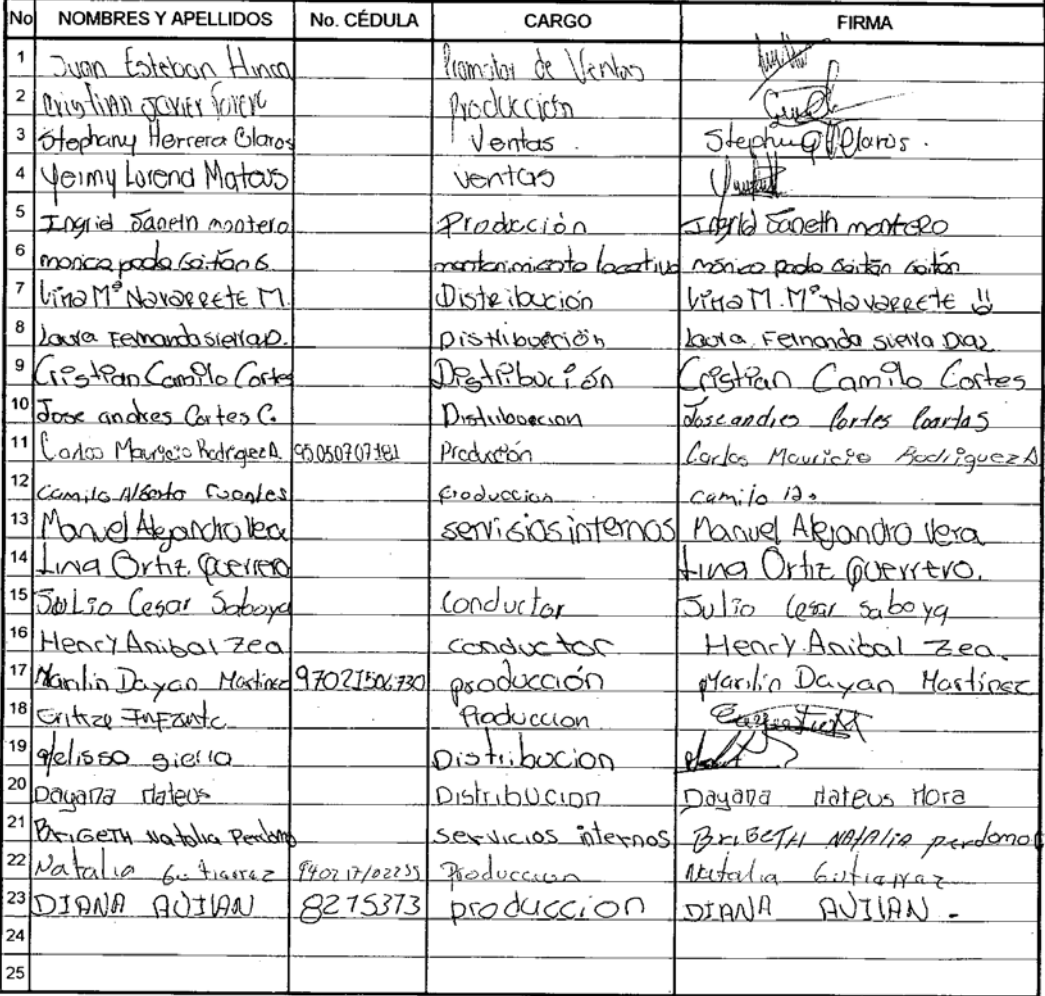 No NOMBRES Y APELLIDOS No. CÉDULA CARGO FIRMA
1 Juan Esteban Hinca Promotor de Ventas
2 Cristian Javier Produccićn
3 Stephany Herrera Claros Ventas . Stephany Claros .
4 Yeimy Lorena Mateus ventas
5 Ingrid Janeth montero Producción Ingrid Janeth montero
6 monica paola Gaitán G. mantenimiento locativo mónica paola Gaitán Gaitán
7 Lina Mª Navarrete M. Distribución Lina M. Mª Navarrete
8 Laura Fernanda sierra D. Distribución Laura Fernanda sierra Diaz
9 Cristian Camilo Cortes Distribución Cristian Camilo Cortes
10 Jose andres Cortes C. Distribuecion Jose andres Cortes
11 Carlos Mauricio Rodriguez A. 95050707181 Producción Carlos Mauricio Rodriguez A
12 Camilo Alberto Fuentes Produccion camilo
13 Manuel Alejandro Vera servisios internos Manuel Alejandro Vera
14 Lina Ortiz Guerrero Lina Ortiz Guerrero.
15 Julio Cesar Saboya Conductor Julio Cesar saboya
16 Henry Anibal Zea conductor Henry Anibal Zea.
17 Marilin Dayan Martinez 97021506730 producción Marilin Dayan Martinez
18 Infante Produccion
19 Melissa sierra Distribucion
20 Dayana Mateus Distribucion Dayana Mateus Mora
21 BRIGETH Natalia Perdomo servicios internos BRIGETH NATALIA perdomo
22 Natalia Gutierrez Produccion Natalia Gutierrez
23 DIANA AVILAN 8275373 produccion DIANA AVILAN .
24
25